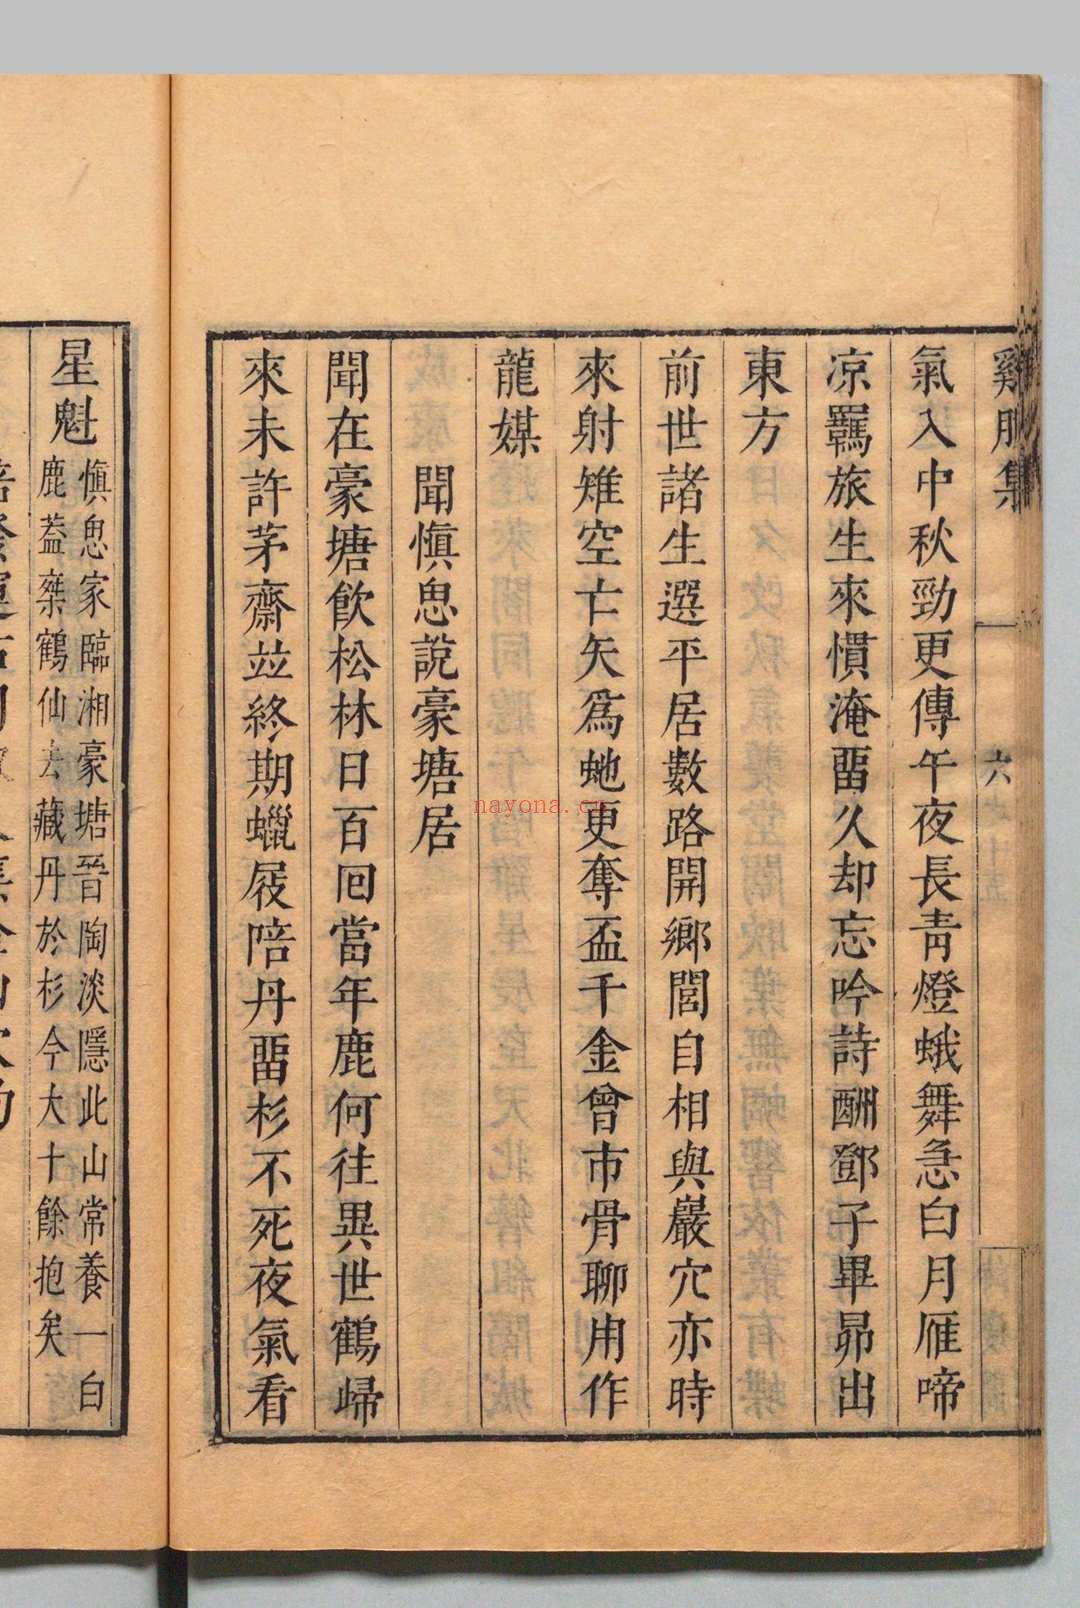 雞肋集
六
氣入中秋勁更傳午夜長青燈蛾舞急白月雁啼
凉羈旅生來慣淹畱久却忘吟詩酬鄧子畢昴出
東方
前世諸生選平居數路開鄉閭自相與巖穴亦時
來射雉空亡矢爲虵更奪盃千金曾市骨聊用作
龍媒
聞愼思説豪塘居
聞在豪塘飮松林日百囘當年鹿何往異世鶴歸
來未許茅齋竝終期蠟屐陪丹畱杉不死夜氣看
星魁
愼思家臨湘豪塘晉陶淡隱此山常養一白
鹿葢櫱鶴仙去藏丹於杉今大十餘抱矣
nayona.cn